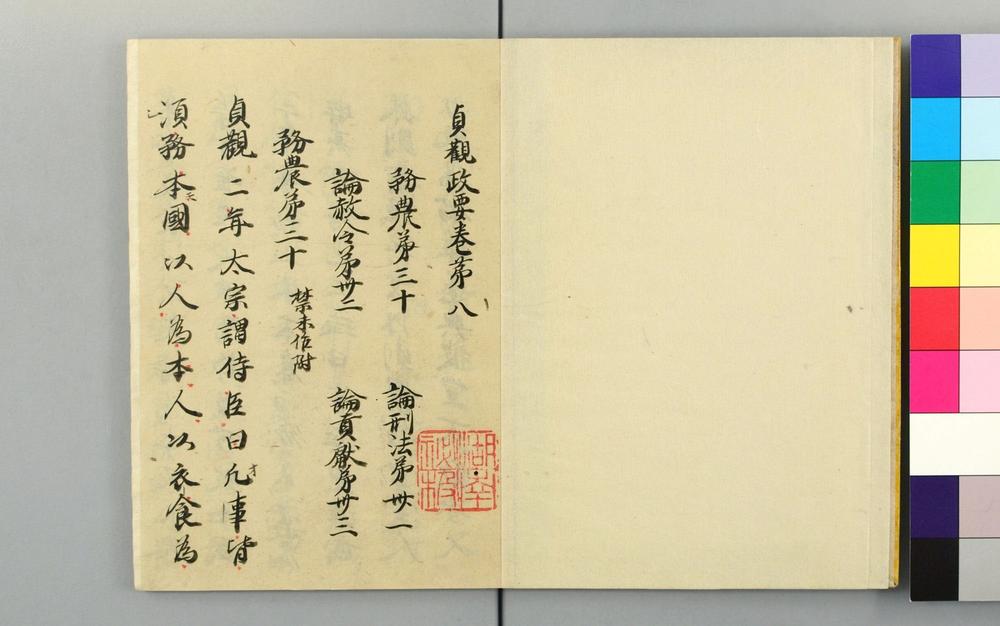 貞觀政要卷第八
務農第三十　論刑法第卅一
論赦令第卅二　論貢獻第卅三
務農第三十　禁末作附
貞觀二年太宗謂侍臣曰凡事皆
須務本國以人為本人以衣食為